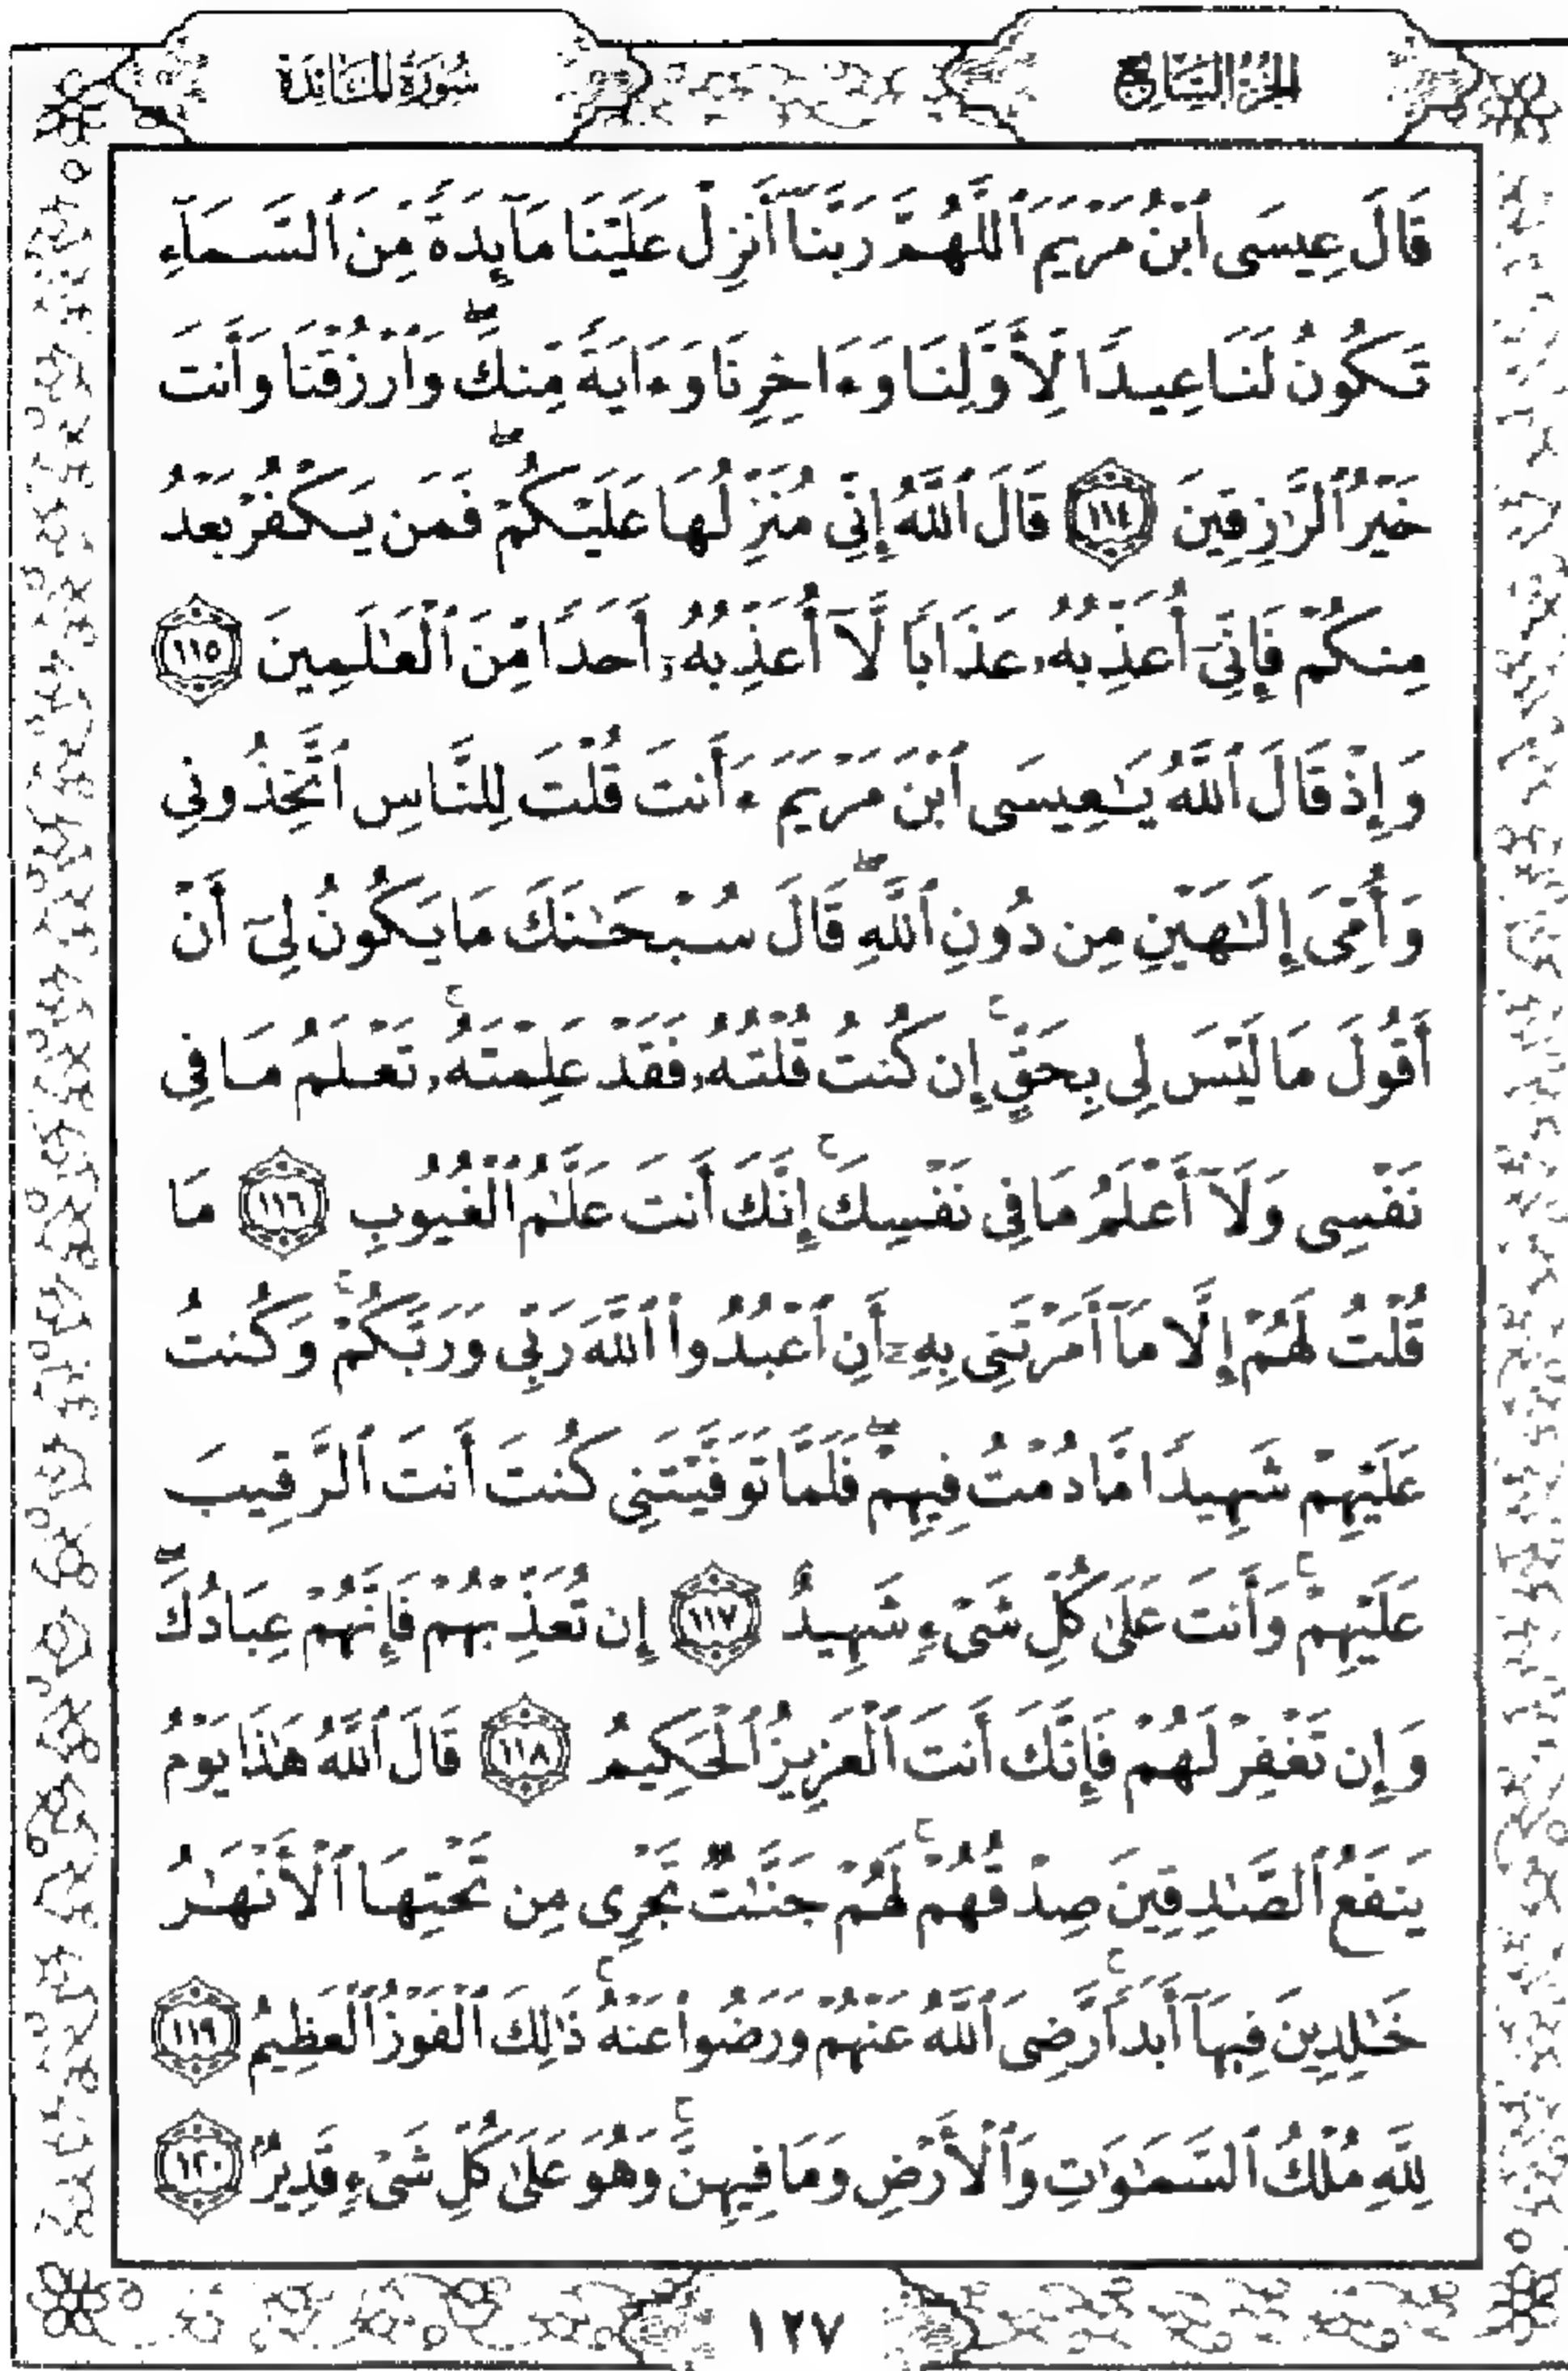 الجزء السابع
سورة المائدة
قَالَ عِيسَى ٱبْنُ مَرْيَمَ ٱللَّهُمَّ رَبَّنَآ أَنزِلْ عَلَيْنَا مَآئِدَةً مِّنَ ٱلسَّمَآءِ
تَكُونُ لَنَا عِيدًا لِّأَوَّلِنَا وَءَاخِرِنَا وَءَايَةً مِّنكَۖ وَٱرْزُقْنَا وَأَنتَ
خَيْرُ ٱلرَّٰزِقِينَ ١١٤ قَالَ ٱللَّهُ إِنِّي مُنَزِّلُهَا عَلَيْكُمْۖ فَمَن يَكْفُرْ بَعْدُ
مِنكُمْ فَإِنِّيٓ أُعَذِّبُهُۥ عَذَابًا لَّآ أُعَذِّبُهُۥٓ أَحَدًا مِّنَ ٱلْعَٰلَمِينَ ١١٥
وَإِذْ قَالَ ٱللَّهُ يَٰعِيسَى ٱبْنَ مَرْيَمَ ءَأَنتَ قُلْتَ لِلنَّاسِ ٱتَّخِذُونِي
وَأُمِّيَ إِلَٰهَيْنِ مِن دُونِ ٱللَّهِۖ قَالَ سُبْحَٰنَكَ مَا يَكُونُ لِيٓ أَنْ
أَقُولَ مَا لَيْسَ لِي بِحَقٍّۚ إِن كُنتُ قُلْتُهُۥ فَقَدْ عَلِمْتَهُۥۚ تَعْلَمُ مَا فِي
نَفْسِي وَلَآ أَعْلَمُ مَا فِي نَفْسِكَۚ إِنَّكَ أَنتَ عَلَّٰمُ ٱلْغُيُوبِ ١١٦ مَا
قُلْتُ لَهُمْ إِلَّا مَآ أَمَرْتَنِي بِهِۦٓ أَنِ ٱعْبُدُوا۟ ٱللَّهَ رَبِّي وَرَبَّكُمْۚ وَكُنتُ
عَلَيْهِمْ شَهِيدًا مَّا دُمْتُ فِيهِمْۖ فَلَمَّا تَوَفَّيْتَنِي كُنتَ أَنتَ ٱلرَّقِيبَ
عَلَيْهِمْۚ وَأَنتَ عَلَىٰ كُلِّ شَيْءٍ شَهِيدٌ ١١٧ إِن تُعَذِّبْهُمْ فَإِنَّهُمْ عِبَادُكَۖ
وَإِن تَغْفِرْ لَهُمْ فَإِنَّكَ أَنتَ ٱلْعَزِيزُ ٱلْحَكِيمُ ١١٨ قَالَ ٱللَّهُ هَٰذَا يَوْمُ
يَنفَعُ ٱلصَّٰدِقِينَ صِدْقُهُمْۚ لَهُمْ جَنَّٰتٌ تَجْرِي مِن تَحْتِهَا ٱلْأَنْهَٰرُ
خَٰلِدِينَ فِيهَآ أَبَدًاۚ رَّضِيَ ٱللَّهُ عَنْهُمْ وَرَضُوا۟ عَنْهُۚ ذَٰلِكَ ٱلْفَوْزُ ٱلْعَظِيمُ ١١٩
لِلَّهِ مُلْكُ ٱلسَّمَٰوَٰتِ وَٱلْأَرْضِ وَمَا فِيهِنَّۚ وَهُوَ عَلَىٰ كُلِّ شَيْءٍ قَدِيرٌۢ ١٢٠
١٢٧